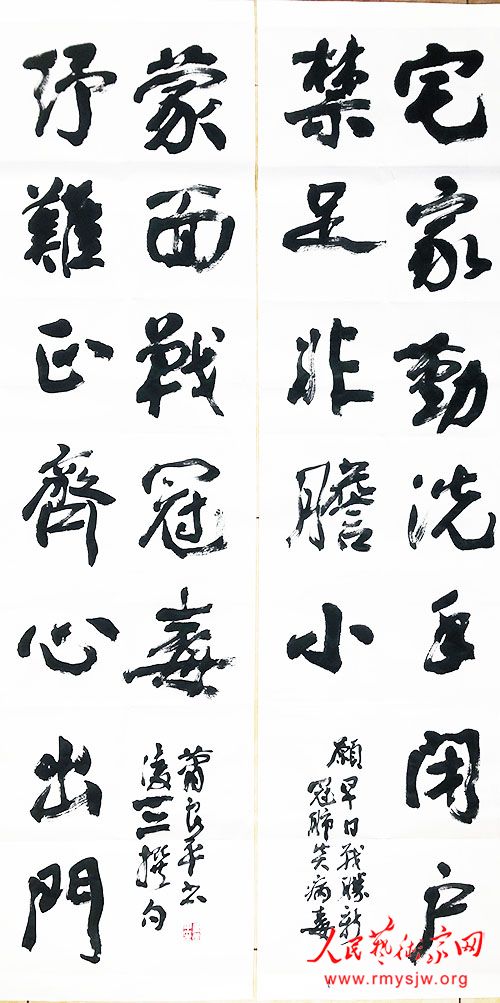 宅家勤洗手闭户
禁足非膽小
願早日战勝新
冠肺炎病毒
纾難正齊心出門
蒙面戰冠毒
萧良平书
凌三撰句
人民艺术家网
www.rmysjw.org